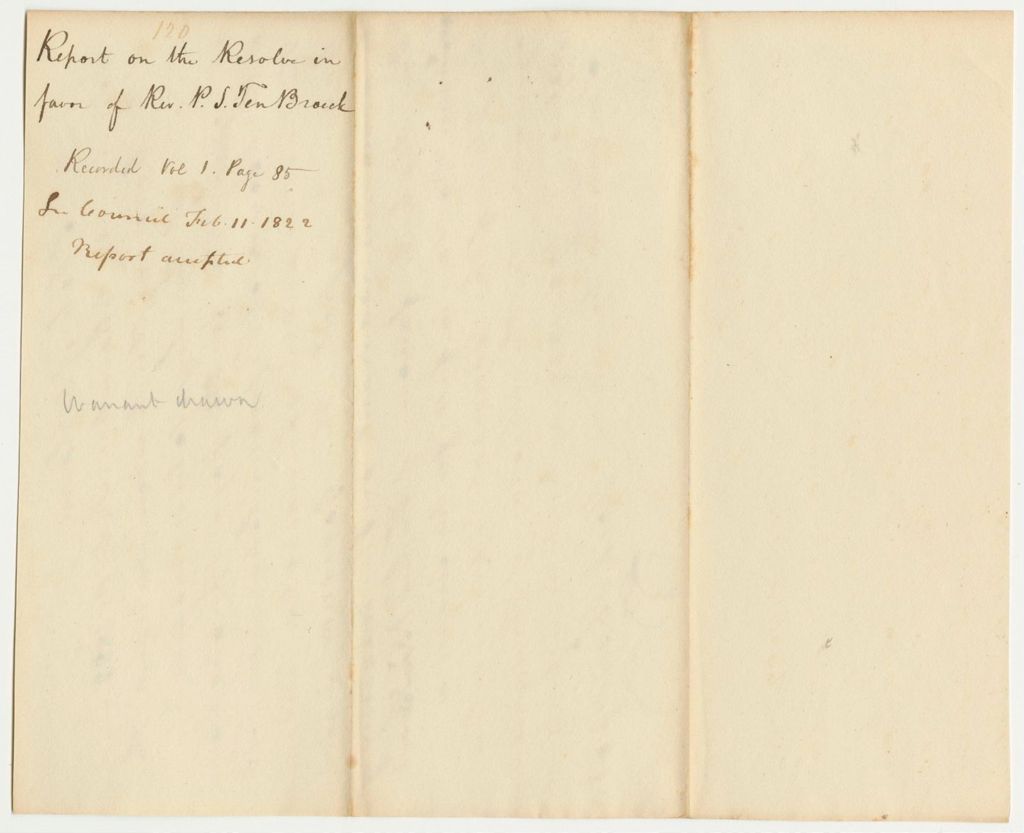 120
Report on the Resolve in
favor of Rev. P. S. Ten Broeck
Recorded Vol 1. Page 85
In Council Feb. 11. 1822
Report accepted.
Warrant drawn